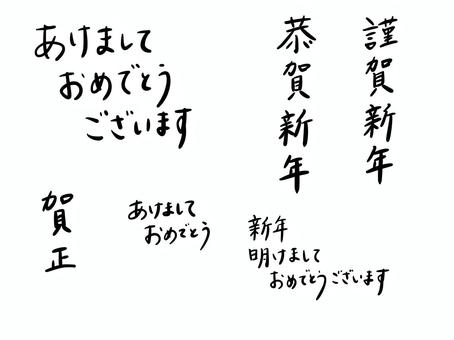 あけまして
おめでとう
ございます
恭賀新年
謹賀新年
賀正
あけまして
おめでとう
新年
明けまして
おめでとうございます